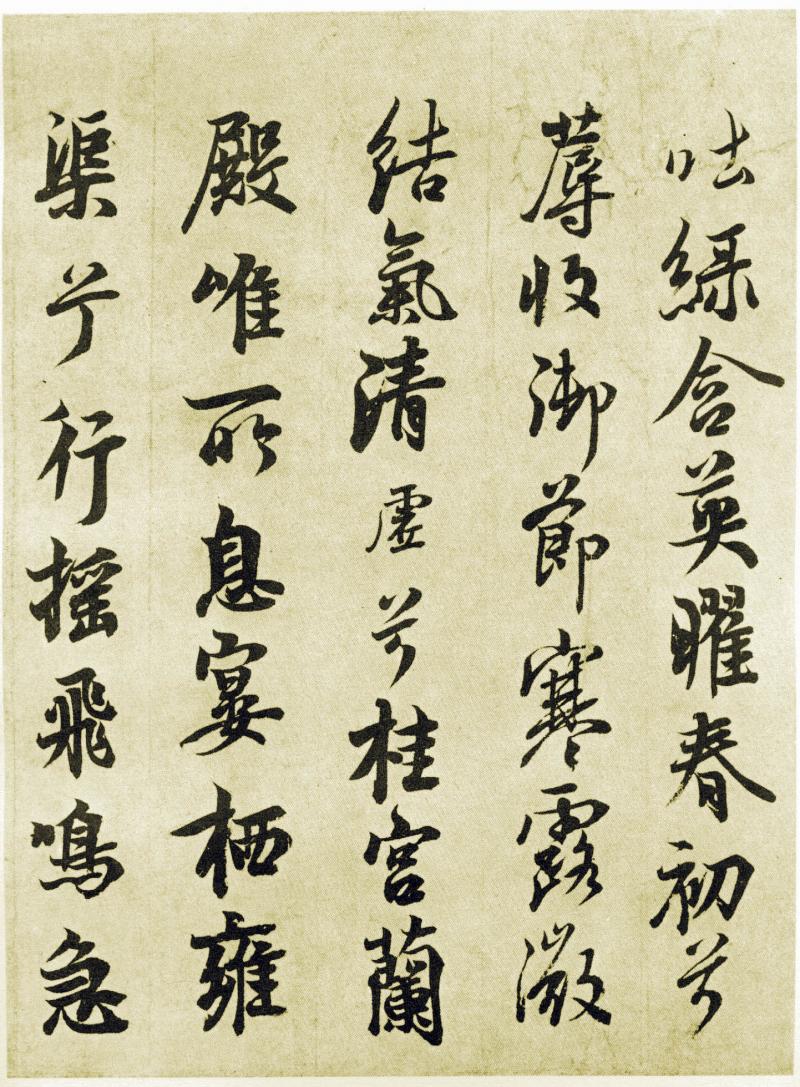 吐綠含英曜春初兮
蓐收御節寒露微
結氣清虛兮桂宮蘭
殿唯所息宴栖雍
渠兮行搖飛鳴急